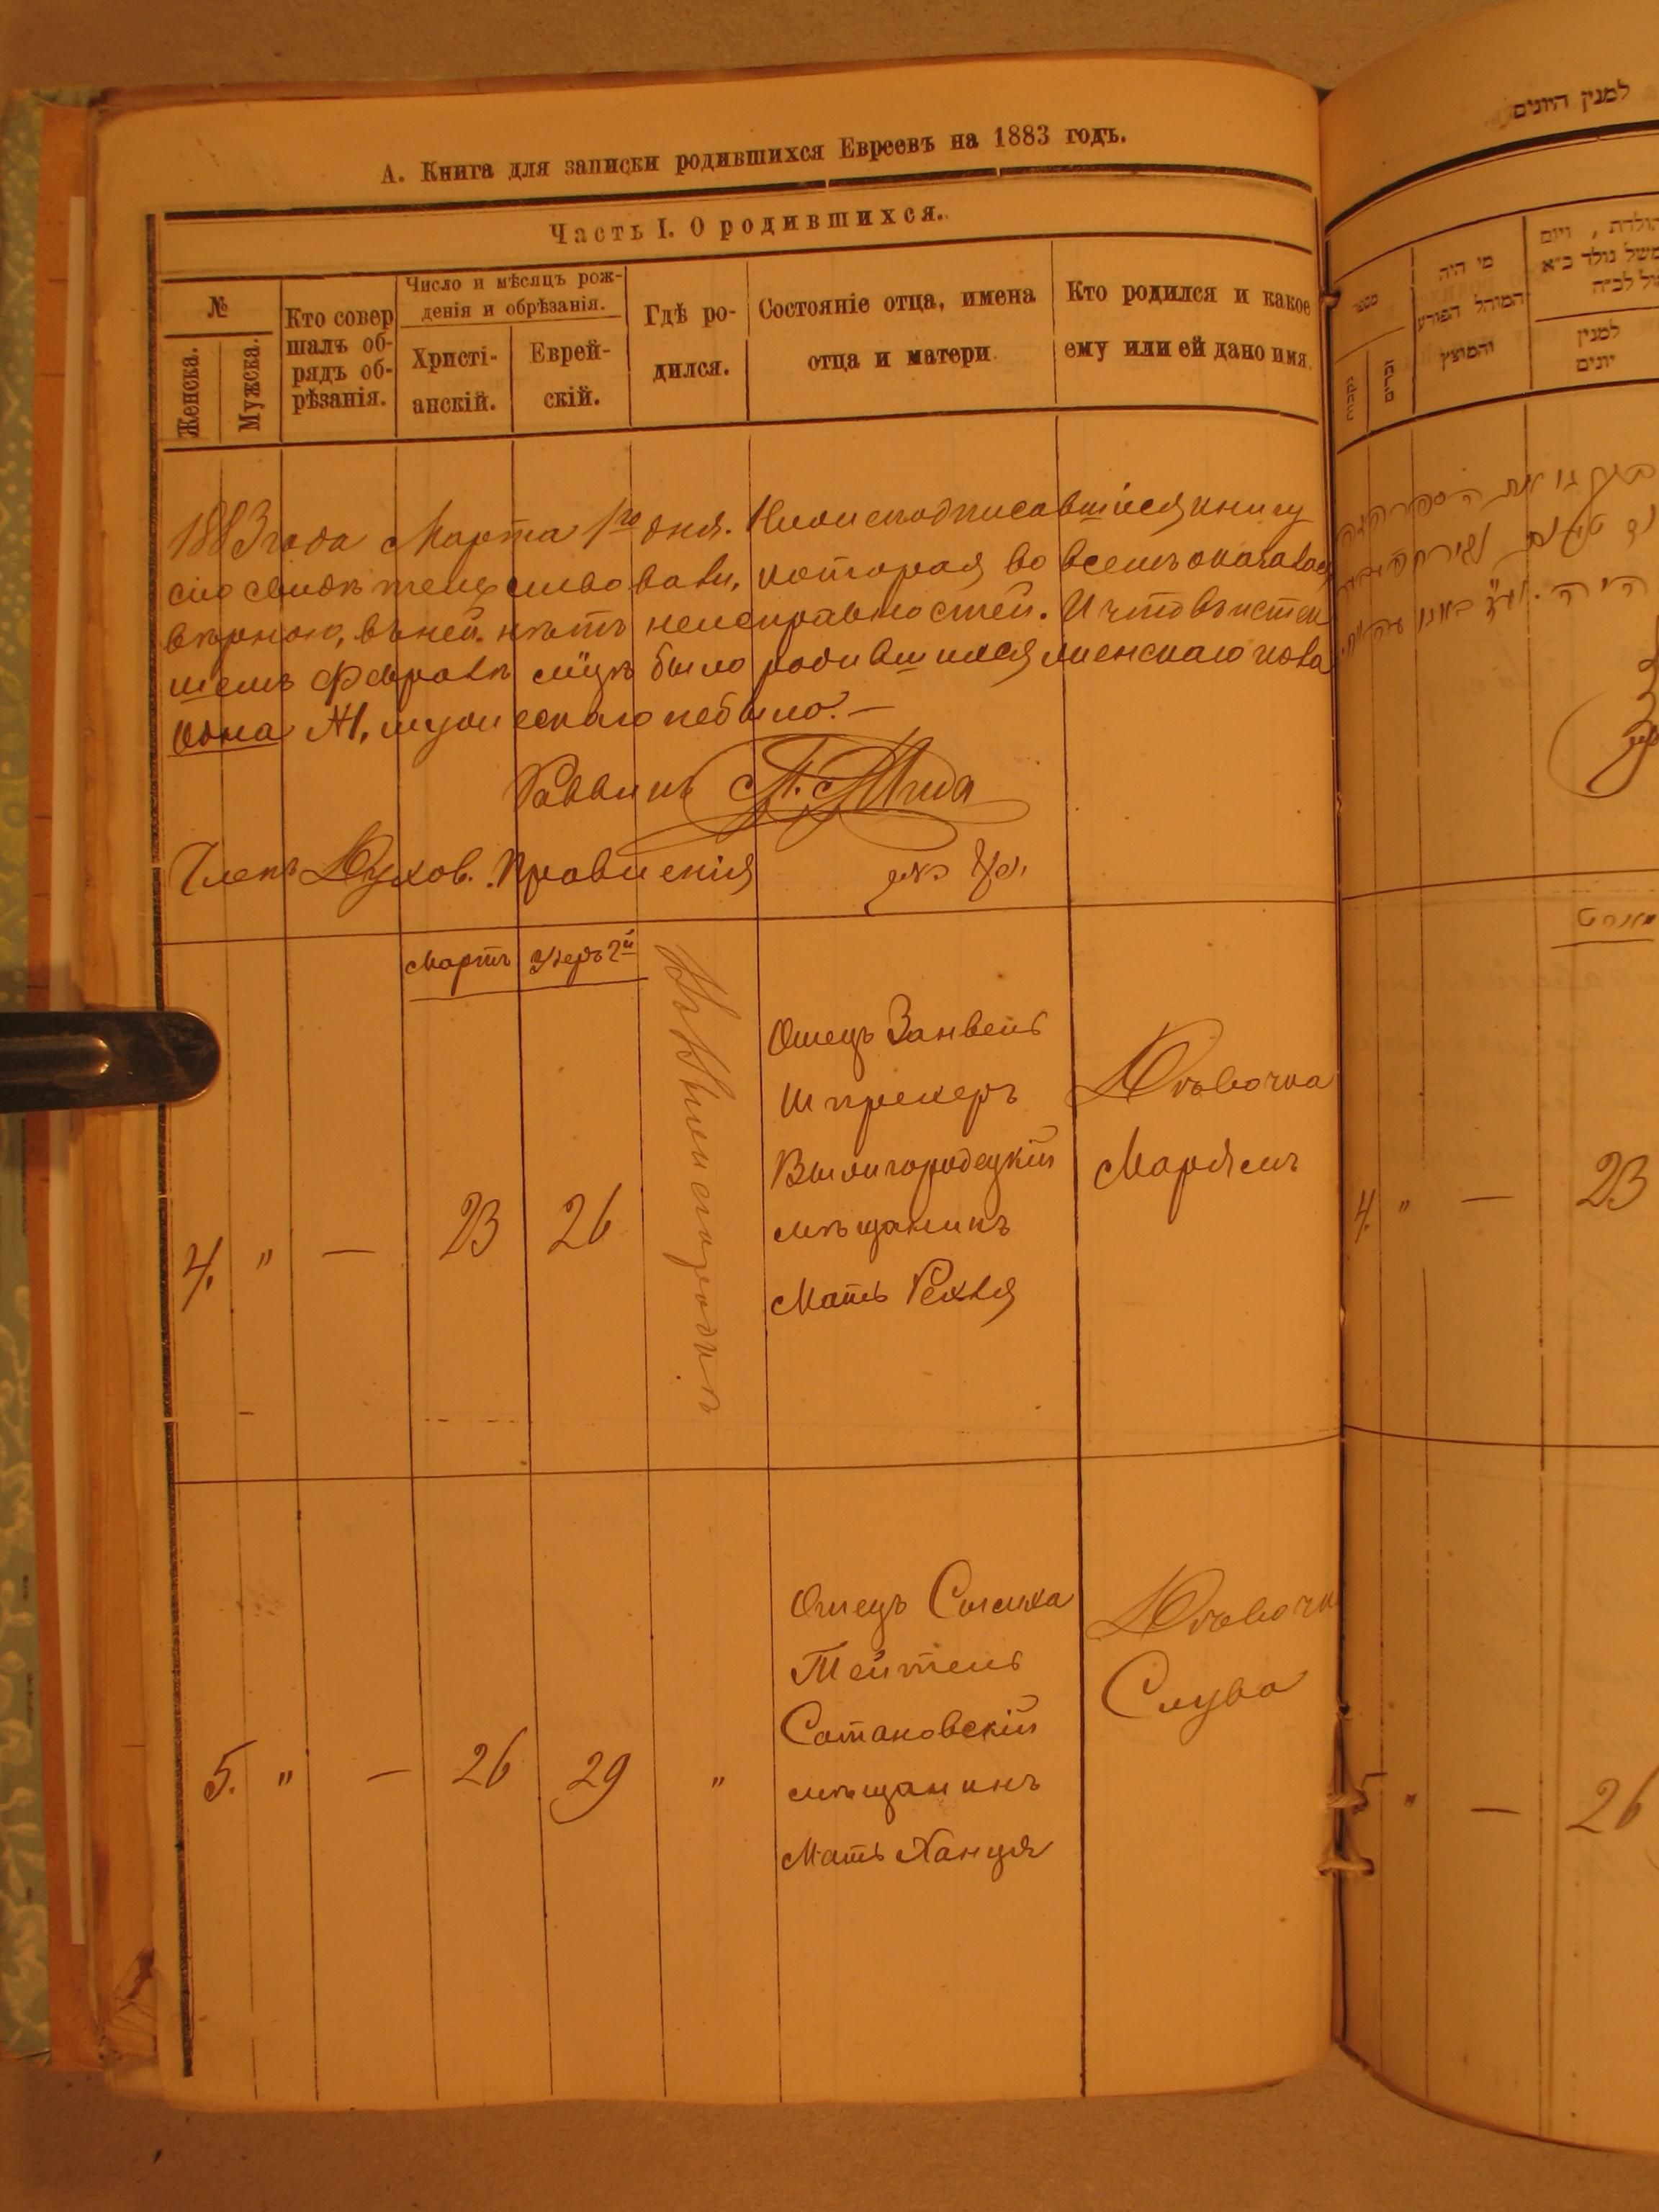 А. Книга для записки родившихся Евреевъ на 1883 годъ.
Часть I. О родившихся.
№
Женска.
Мужска.
Кто совер
шалъ об-
рядъ об-
рѣзанія.
Число и мѣсяцъ рож-
денія и обрѣзанія.
Христі-
анскій.
Еврей-
скій.
Гдѣ ро-
дился.
Состояніе отца, имена
отца и матери.
Кто родился и какое
ему или ей дано имя.
1883 года Марта 1го дня. Нижеподписавшіеся книгу
сію свидѣтельствовали, которая во всемъ оказалась
вѣрною, въ ней нѣтъ неисправностей. И что въ истек
шемъ Февралѣ мцѣ было родившихся женскаго пола
одна №1, мужескаго небыло. —
Раввинъ
Членъ Духов. Правленія
Мартъ
Адеръ 2й
4.
"
—
23
26
Отецъ Занвель
Шпрехеръ
Вышгородецкій
мѣщанинъ
Мать Рехля
Дѣвочка
Марьямъ
5.
"
—
26
29
"
Отецъ Симха
Тейтель
Сатановскій
мѣщанинъ
Мать Ханця
Дѣвочк
Слува
למנין היונים
מספר
נקבות
זכרים
מי היה
המוהל הפורע
והמוצץ
למנין
יונים
4.
"
—
23
5
"
—
26